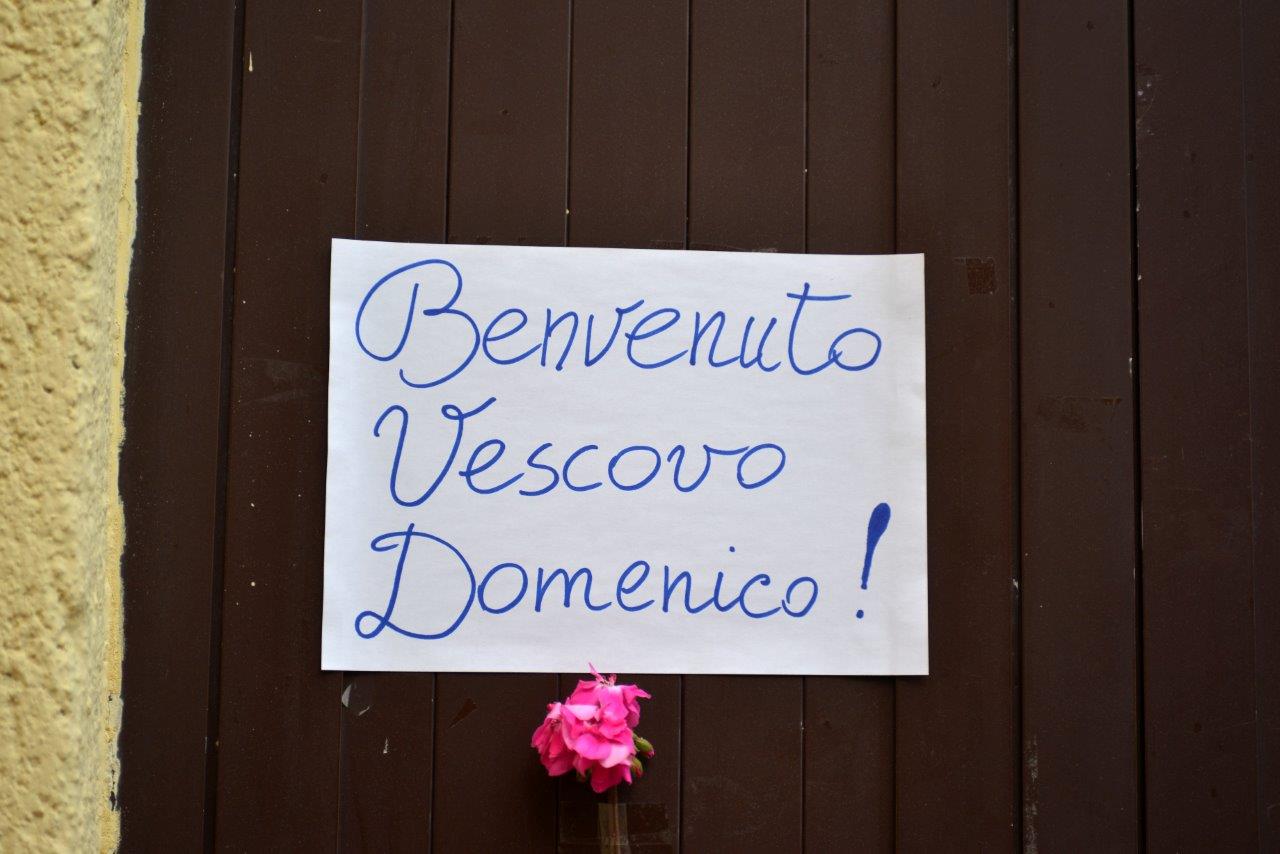 Benvenuto
Vescovo
Domenico!